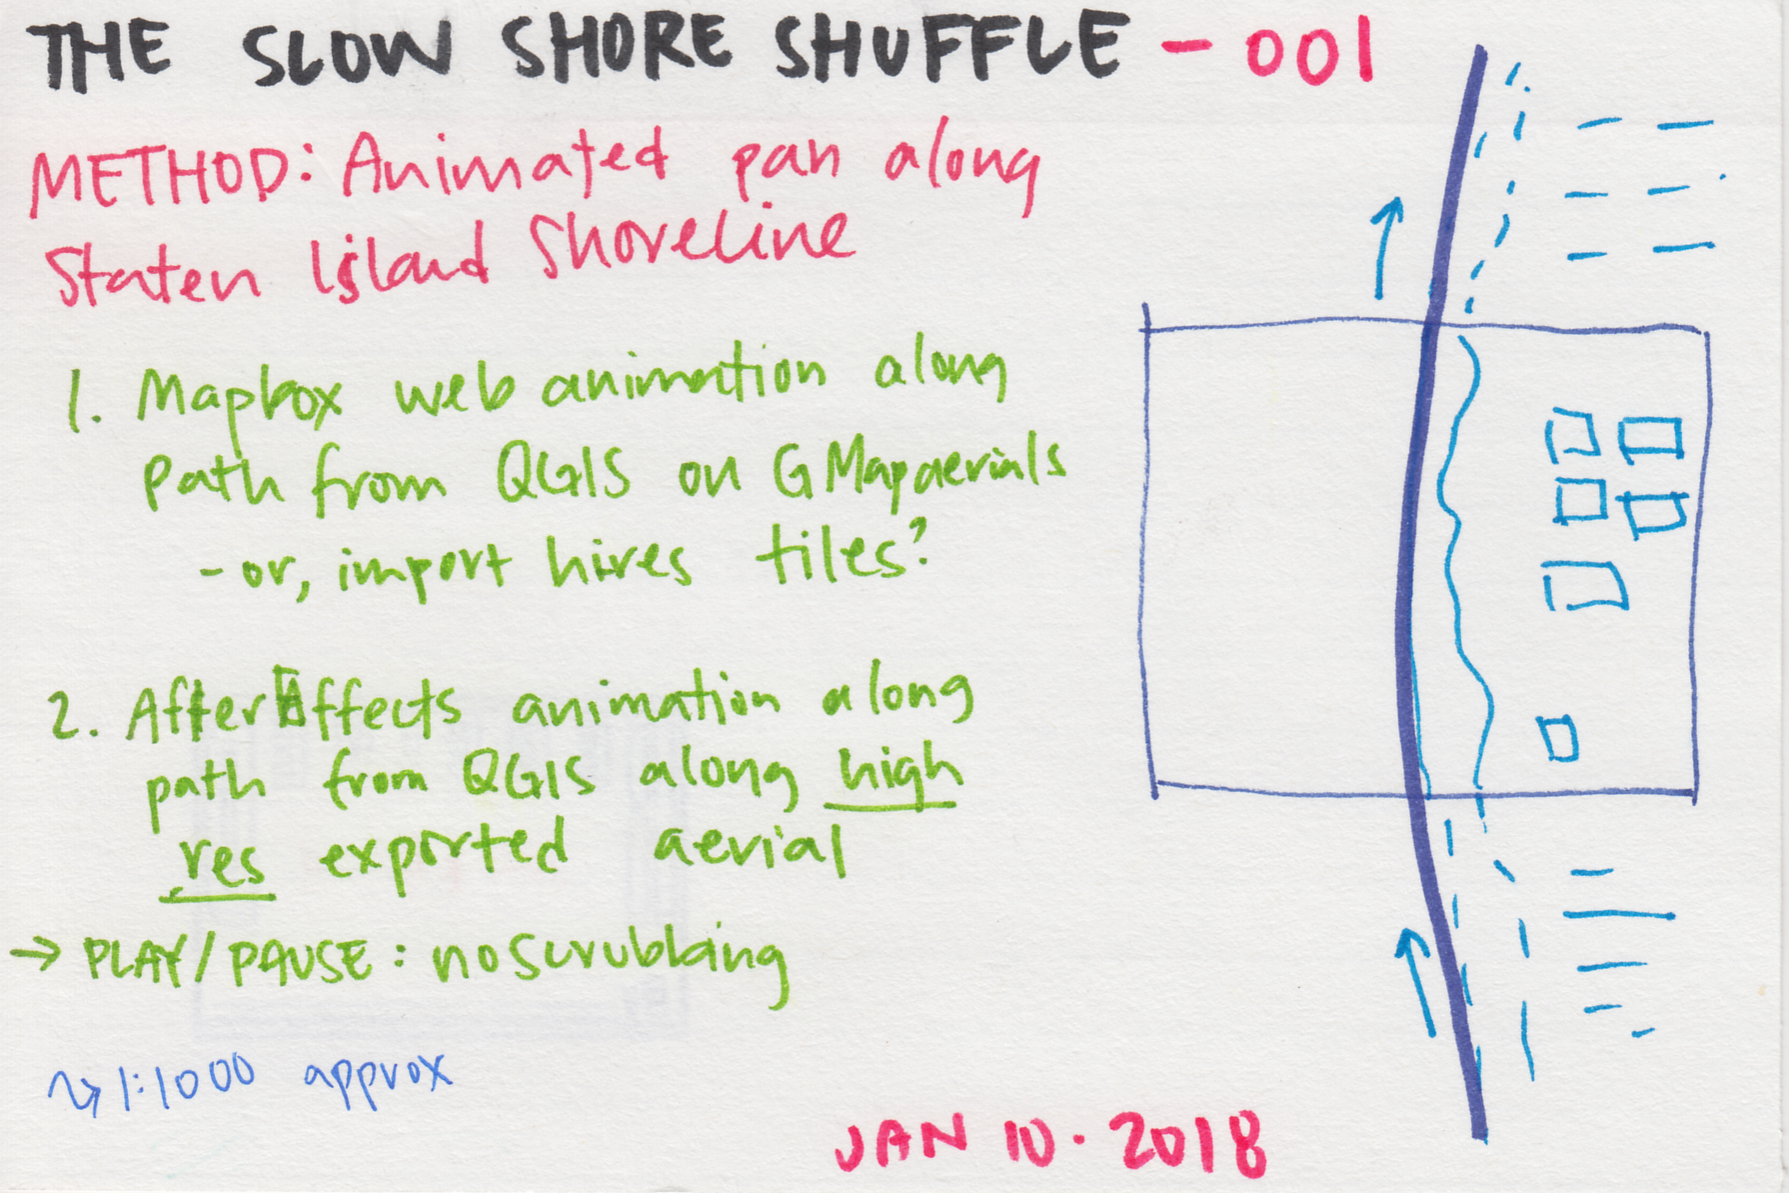 THE SLOW SHORE SHUFFLE - 001
METHOD: Animated pan along
Staten Island Shoreline
1. Mapbox web animation along
path from QGIS on GMap aerials
- or, import hires tiles?
2. AfterEffects animation along
path from QGIS along high
res exported aerial
→ PLAY/PAUSE: no scrubbing
↝ 1:1000 approx
JAN 10. 2018